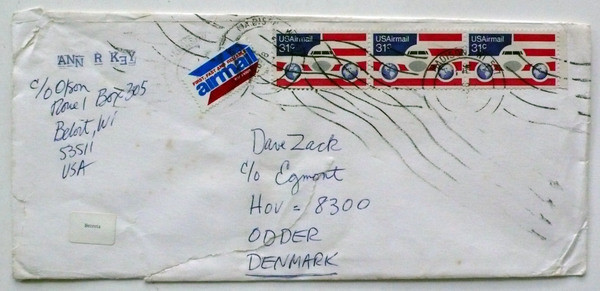 ANN R KEY
c/o Olson
Route 1 Box 305
Beloit, Wi
53511
USA
airmail
USAirmail
31c
USAirmail
31c
USAirmail
31c
Dave Zack
c/o Egmont
Hov = 8300
ODDER
DENMARK